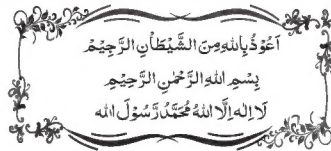 اَعُوْذُ بِاللّٰهِ مِنَ الشَّيْطَانِ الرَّجِيْمِ
بِسْمِ اللّٰهِ الرَّحْمٰنِ الرَّحِيْمِ
لَا اِلٰهَ اِلَّا اللّٰهُ مُحَمَّدٌ رَّسُوْلُ اللّٰه